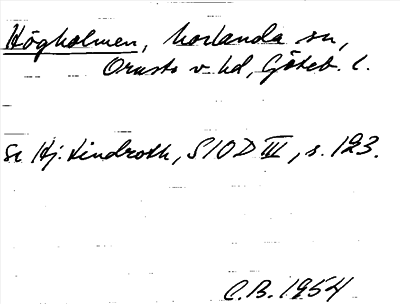 Högholmen, Morlanda sn,
Orusts v. hd, Göteb. l.
Se Hj. Lindroth, SIOD III, s. 123.
C.B. 1954